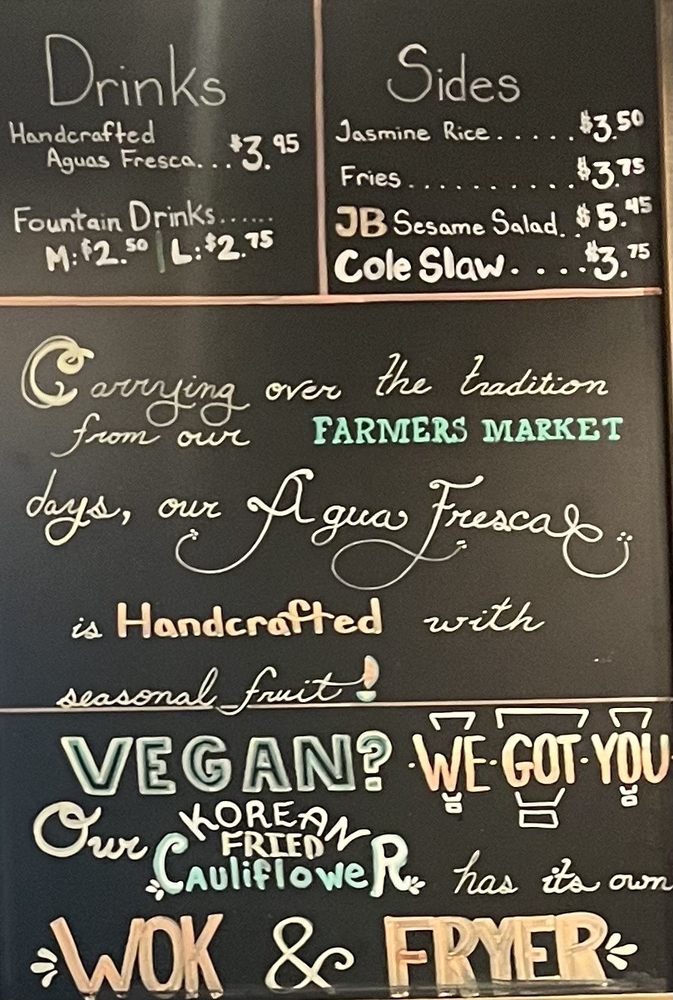 Drinks
Handcrafted
Aguas Fresca... $3.95
Fountain Drinks......
M:$2.50 | L:$2.75
Sides
Jasmine Rice.....$3.50
Fries..........$3.75
JB Sesame Salad..$5.45
Cole Slaw....$3.75
Carrying over the tradition
from our FARMERS MARKET
days, our Agua Fresca
is Handcrafted with
seasonal fruit!
VEGAN? WE·GOT·YOU
Our KOREAN
FRIED
CAUlIflOWeR has its own
WOK & FRYER